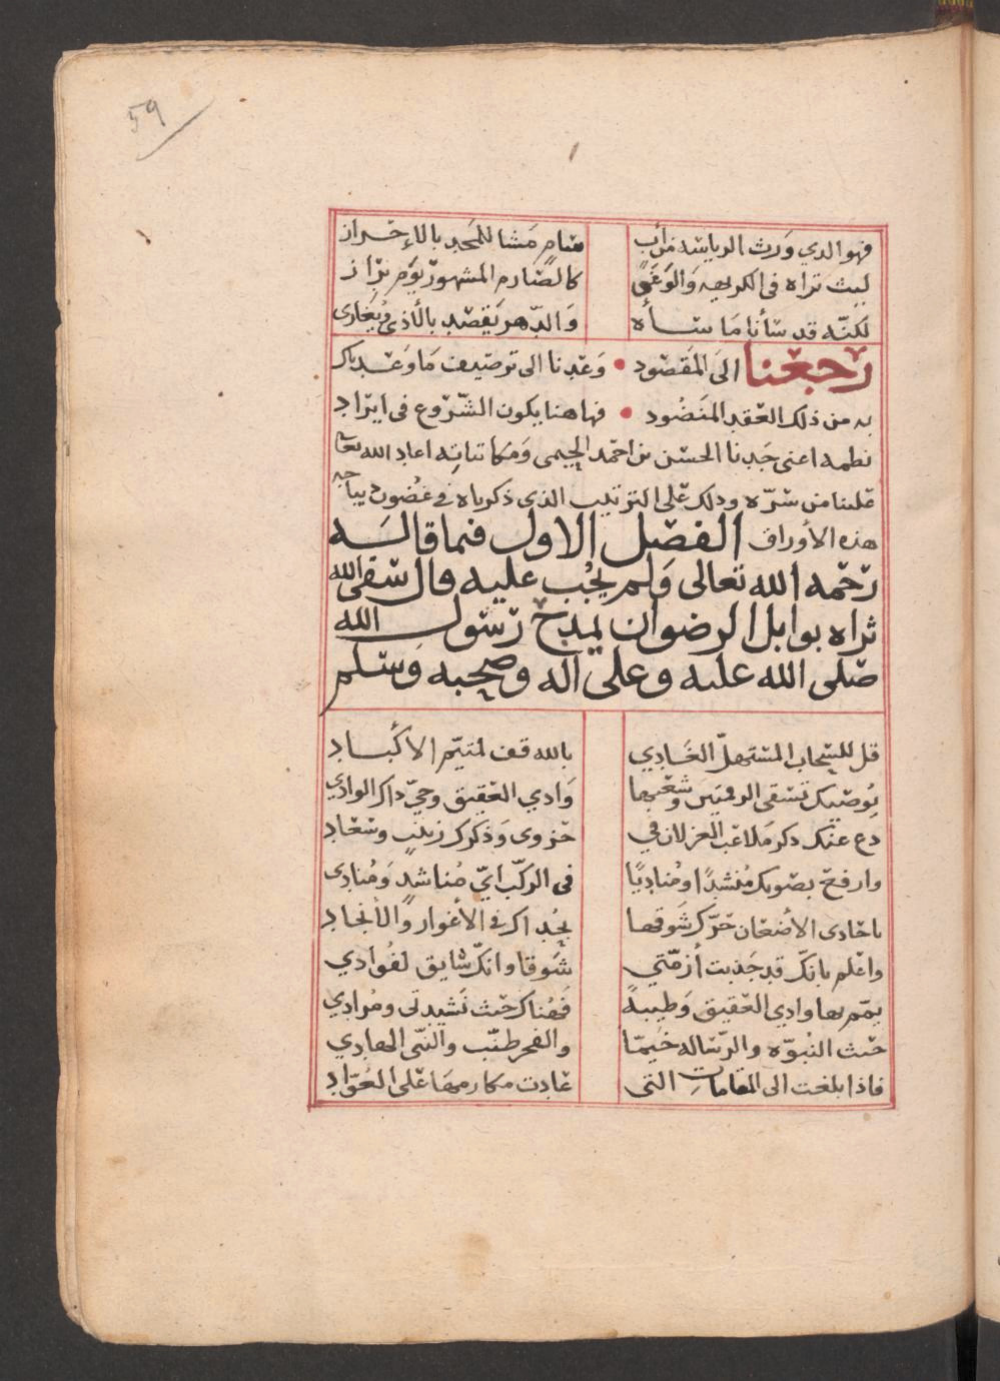 59
فهو الذي ورث الرياسة من أب سام مشا للمجد بالاحراز
ليث تراه في الكريهه والوغى كالصارم المشهور يوم براز
لكنه قد سأنا ما سأه والدهر يقصد بالأذى ويغازى
رجعنا الى المقصود • وعدنا الى توصيف ما وعدناك
به من ذلك العقد المنضود • فهاهنا يكون الشروع في ايراد
نظمه اعنى جدنا الحسن بن احمد الحيمى ومكاتباته اعاد الله تعا
علينا من سره وذلك على الترتيب الذي ذكرناه في غضون ديباجه
هذه الأوراق الفصل الاول فيما قاله
رحمه الله تعالى ولم يجب عليه قال سقى الله
ثراه بوابل الرضوان يمدح رسول الله
صلى الله عليه وعلى اله وصحبه وسلم
قل للسحاب المستهل الغادي بالله قف لمتيم الاكباد
يوصيك تسقى الرقمتين وشعبها وادي العقيق وحي ذاك الوادي
دع عنك ذكر ملاعب الغزلان في حزوى وذكرك زينب وسعاد
وارفع بصوتك منشدا ومناديا في الركب اي مناشد ومنادى
يا حادى الأضعان حرك شوقها بحداك في الأغوار والأنجاد
واعلم بانك قد جذبت أزمتي شوقا وانك سايق لفوادي
يمم بها وادي العقيق وطيبة فهناك حيث نشيدتى ومرادي
حيث النبوه والرساله خيما والفخر طنب والنبى الهادي
فاذا بلغت الى المقامات التى عادت مكارمها على العواد